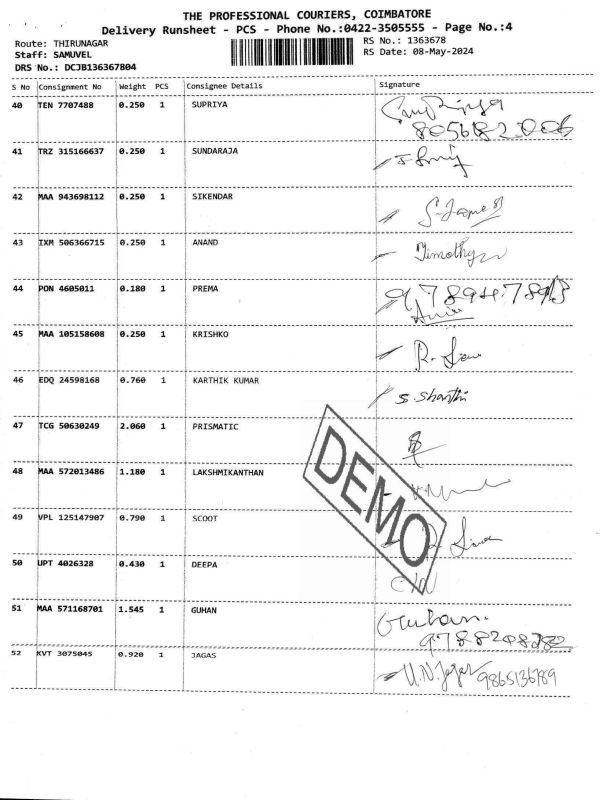 THE PROFESSIONAL COURIERS, COIMBATORE
Delivery Runsheet - PCS - Phone No.:0422-3505555 - Page No.:4
Route: THIRUNAGAR
RS No.: 1363678
Staff: SAMUVEL
RS Date: 08-May-2024
DRS No.: DCJB136367804
S No Consignment No Weight PCS Consignee Details Signature
40 TEN 7707488 0.250 1 SUPRIYA
41 TRZ 315166637 0.250 1 SUNDARAJA
42 MAA 943698112 0.250 1 SIKENDAR S. James
43 IXM 506366715 0.250 1 ANAND Timothy
44 PON 4605011 0.180 1 PREMA
45 MAA 105158608 0.250 1 KRISHKO
46 EDQ 24598168 0.760 1 KARTHIK KUMAR S. Shanthi
47 TCG 50630249 2.060 1 PRISMATIC
48 MAA 572013486 1.180 1 LAKSHMIKANTHAN
49 VPL 125147907 0.790 1 SCOOT
50 UPT 4026328 0.430 1 DEEPA
51 MAA 571168701 1.545 1 GUHAN Guhan.
52 KVT 3075045 0.920 1 JAGAS 9865136789
DEMO